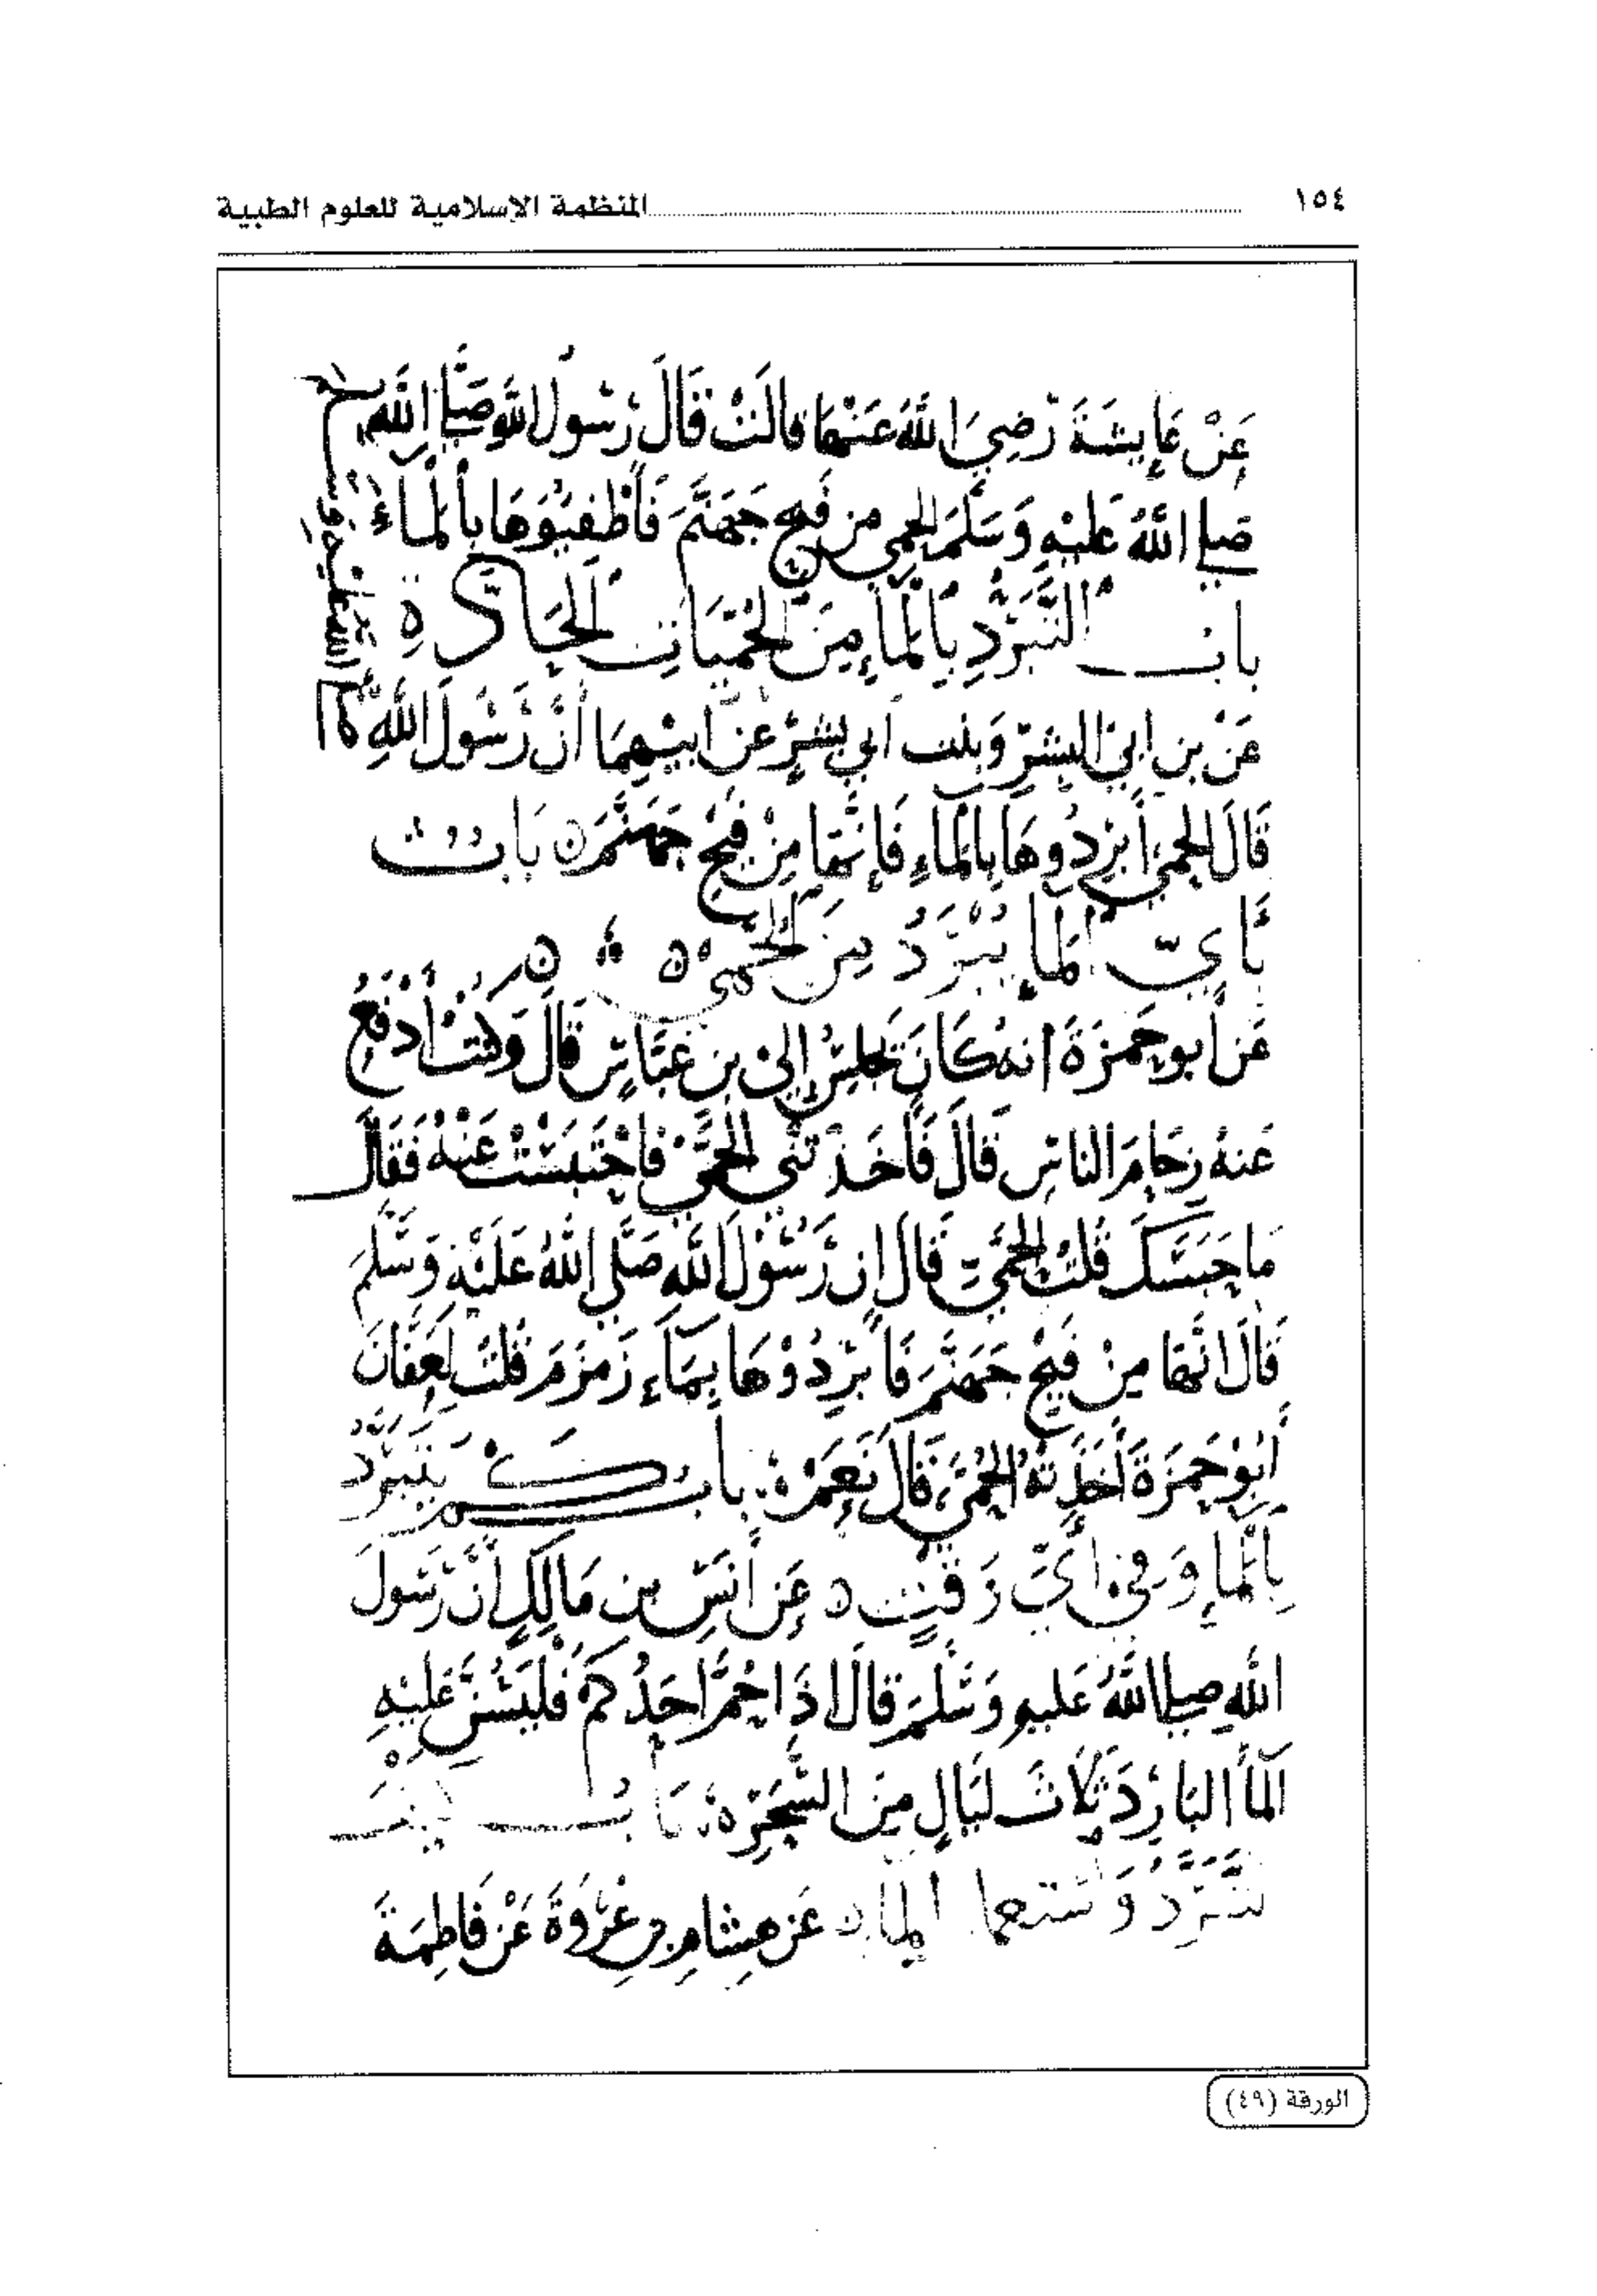 ١٥٤ المنظمة الإسلامية للعلوم الطبية
عَنْ عَايِشَةَ رَضِيَ اللهُ عَنْهَا قَالَتْ قَالَ رَسُولُ اللهِ صَلَّى اللهُ
صلى اللهُ عَليْهِ وَسَلَّمَ الحمى من فَيح جَهَنَّمَ فَأَطْفِئُوهَا بِالْمَاءِ
باب التَّبَرُّدِ بِالْمَاءِ مِنَ الحُمَّيَاتِ الحَادَّةِ
عَنْ بن ابي البشرِ وَبنت ابي بشرٍ عَنْ أَبِيْهِمَا أَنَّ رَسُولَ اللهِ
قَالَ الحمى أَبْرِدُوهَا بِالْمَاءِ فَإِنَّهَا مِنْ فَيْحِ جَهَنَّمَ بَابُ
بِأَيِّ الْمَاءِ يُبَرَّدُ مِنَ الحمى
عَن أَبو حَمزَةَ انهُ كَانَ يَجلِسُ إِلى بن عَبَّاسٍ قَالَ وَكُنْتُ أَدْفَعُ
عَنهُ زِحَامَ الناسِ قَالَ فَأَخَذَتْنِي الحُمَّى فَاحْتَبَسْتُ عَنْهُ فَقَالَ
مَا حَبَسَكَ قُلْتُ الحُمَّى قَالَ إِن رَسُوْلَ اللهِ صَلَّى اللهُ عَلَيْهِ وَسَلَّمَ
قَالَ انَّهَا مِنْ فَيْحِ جَهَنَّمَ فَأَبْرِدُوْهَا بِمَاءِ زَمزَمَ قُلتُ لِعَفَّانَ
أَبُوْ حَمزَةَ أَخَذَتْهُ الحُمَّى قَالَ نَعَمْ بابُ كَمْ يَتَبَرَّدُ
بِالْمَاءِ وَفِي أَيِّ وَقْتٍ عَن أَنَسِ بن مَالِكٍ أَنَّ رَسُولَ
اللهِ صلى اللهُ عَليهِ وَسَلَّمَ قَالَ اذَا حُمَّ احَدُكُمْ فَلْيَشُنَّ عَليْهِ
المَاءَ البَارِدَ ثَلَاثَ لَيَالٍ مِنَ السَّحَرِ بَابُ كَيْفَ
نَتَبَرَّدُ الماء عَن هِشَامِ بنِ عُرْوَةَ عَنْ فَاطِمَةَ
الورقة (٤٩)